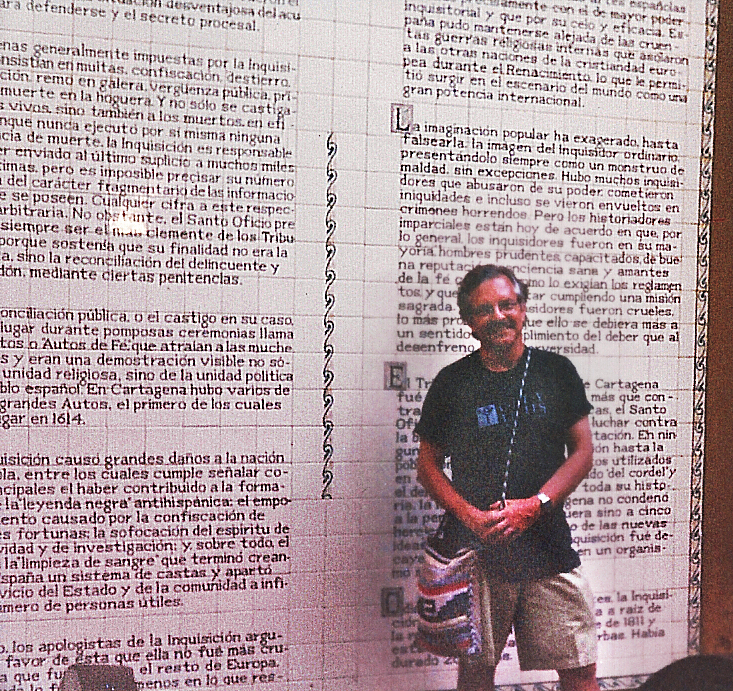 desventajosa del acu
ara defenderse y el secreto procesal.
enas generalmente impuestas por la Inquisi-
nsistían en multas, confiscación, destierro,
ción, remo en galera, vergüenza pública, pri-
muerte en la hoguera. Y no sólo se castiga-
s vivos, sino también a los muertos, en efi
nque nunca ejecutó por sí misma ninguna
cia de muerte, la Inquisición es responsable
er enviado al último suplicio a muchos miles
timas, pero es imposible precisar su número
del carácter fragmentario de las informacio
e se poseen. Cualquier cifra a este respec-
arbitraria. No obstante, el Santo Oficio pre
siempre ser el clemente de los Tribu
porque sostenía que su finalidad no era la
a, sino la reconciliación del delincuente y
dón, mediante ciertas penitencias.
conciliación pública, o el castigo en su caso,
lugar durante pomposas ceremonias llama
tos o Autos de Fe, que atraían a las muche
s y eran una demostración visible no só-
unidad religiosa, sino de la unidad política
blo español. En Cartagena hubo varios de
grandes Autos, el primero de los cuales
gar en 1614.
uisición causó grandes daños a la nación
la, entre los cuales cumple señalar co-
ncipales el haber contribuido a la forma-
e la "leyenda negra" antihispánica; el empo-
ento causado por la confiscación de
es fortunas; la sofocación del espíritu de
vidad y de investigación; y, sobre todo, el
la "limpieza de sangre" que terminó crean-
spaña un sistema de castas y apartó
vicio del Estado y de la comunidad a infi-
mero de personas útiles.
o, los apologistas de la Inquisición argu-
favor de ésta que ella no fue más cru-
a que fu el resto de Europa,
menos en lo que res-
españolas
precisamente con el de mayor poder
inquisitorial y que por su celo y eficacia, Es-
paña pudo mantenerse alejada de las cruen-
tas guerras religiosas internas que asolaron
a las otras naciones de la cristiandad euro-
pea durante el Renacimiento, lo que le permi-
tió surgir en el escenario del mundo como una
gran potencia internacional.
La imaginación popular ha exagerado, hasta
falsearla, la imagen del Inquisidor ordinario,
presentándolo siempre como un monstruo de
maldad, sin excepciones. Hubo muchos inquisi-
dores que abusaron de su poder, cometieron
iniquidades e incluso se vieron envueltos en
crímenes horrendos. Pero los historiadores
imparciales están hoy de acuerdo en que, por
lo general, los inquisidores fueron en su ma-
yoría hombres prudentes, capacitados, de bue
na reputac conciencia sana y amantes
de la fe c mo lo exigían los reglamen
tos, y que tar cumpliendo una misión
sagrada. sidores fueron crueles,
lo más pro ue ello se debiera más a
un sentido plimiento del deber que al
desenfreno versidad.
El Tr e Cartagena
fué más que con-
tra as, el Santo
Ofi luchar contra
la tación. En nin
gun ón hasta la
utilizados
do "del cordel" y
el de toda su histo-
ria, la gena no condenó
a la pe era sino a cinco
here o de las nuevas
ideas quisición fué de-
cay en un organis-
mo
es, la Inquisi-
ción a a raíz de
la r de 1811 y
rbas. Había
durado 2